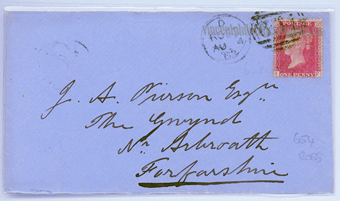 POSTAGE
ONE PENNY
J. A. Pierson Esqre
The Gwynd
Nr Arbroath
Forfarshire